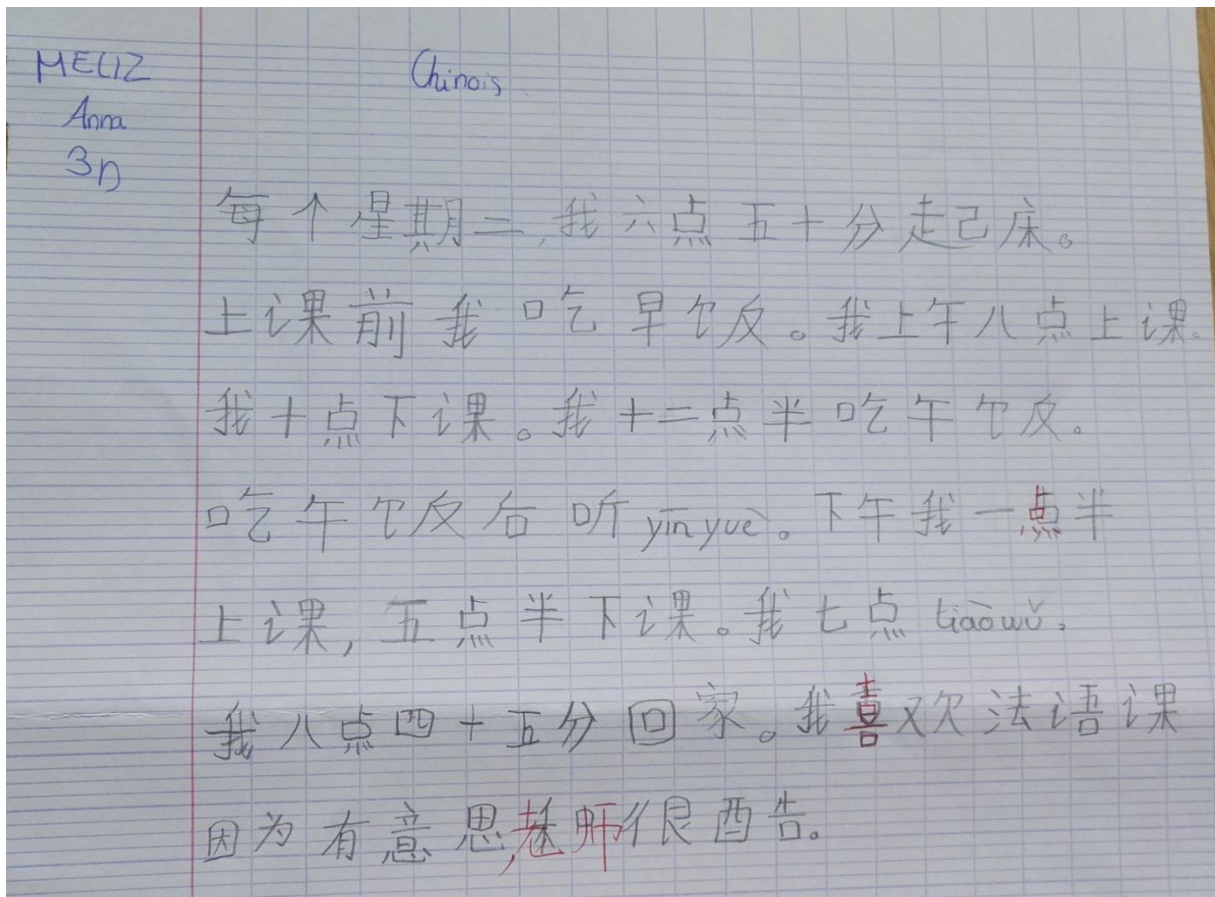 MELIZ
Chinois
Anna
3D
每个星期二,我六点五十分起床。
上课前我吃早饭。我上午八点上课。
我十点下课。我十二点半吃午饭。
吃午饭后听yīnyuè。下午我一点半
上课,五点半下课。我七点tiàowǔ。
我八点四十五分回家。我喜欢法语课
因为有意思,老师很酷。